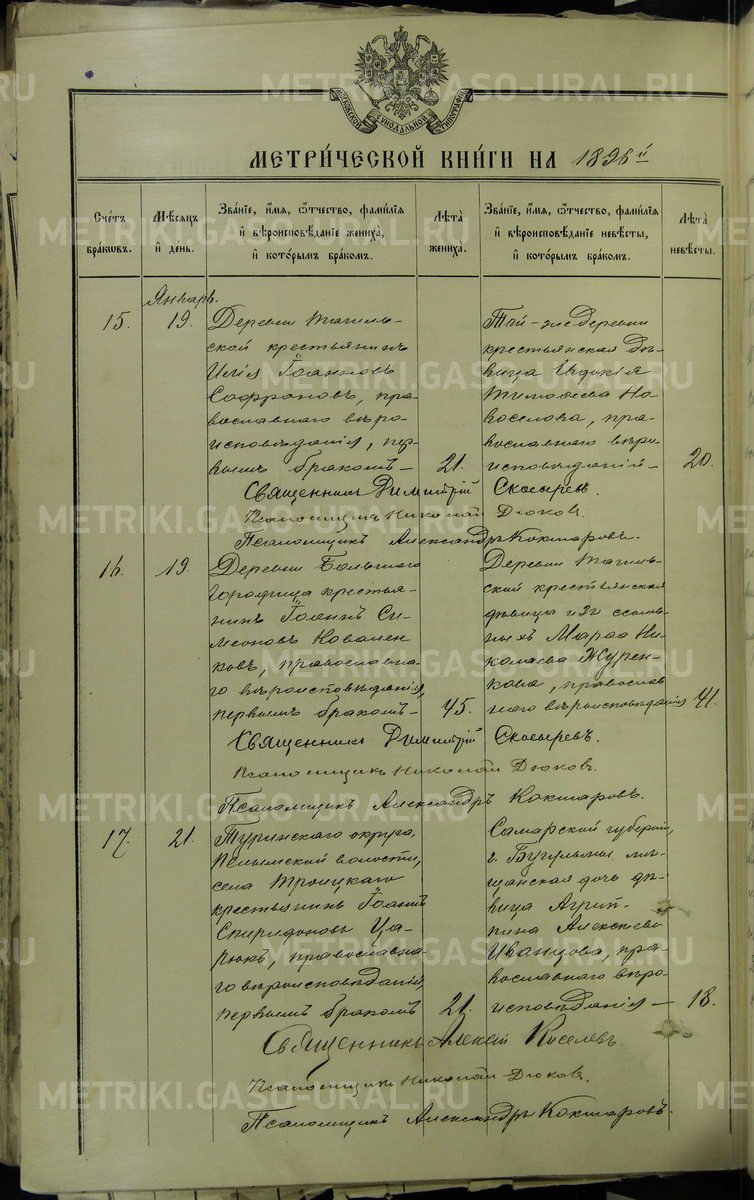 МОСКОВСКОЙ СѴНОДАЛЬНОЙ ТИПОГРАФІИ
МЕТРИ́ЧЕСКОЙ КНИ́ГИ НА 1896й
Сче́тъ бра́кѡвъ.
Мѣ́сѧцъ и҆ де́нь.
Зва́нїе, и҆́мѧ, ѻ҆́тчество, фами́лїѧ
и҆ вѣроисповѣ́данїе жениха̀,
и҆ кото́рымъ бра́комъ.
Лѣ́та жениха̀.
Зва́нїе, и҆́мѧ, ѻ҆́тчество, фами́лїѧ
и҆ вѣроисповѣ́данїе невѣ́сты,
и҆ кото́рымъ бра́комъ.
Лѣ́та невѣ́сты.
Январь.
15. 19.
Деревни Тагиль-
ской крестьянинъ
Илія Іоанновъ
Софроновъ, пра-
вославнаго вѣро-
исповѣданія, пер-
вымъ бракомъ — 21.
Той-же деревни
крестьянская дѣ-
вица Евдокія
Тимофеева Но-
воселова, пра-
вославнаго вѣро-
исповѣданій — 20.
Священникъ Димитрій Скосыревъ.
Псаломщикъ Николай Дюковъ.
Псаломщикъ Александръ Кокшаровъ.
16. 19.
Деревни Большаго
Городища крестья-
нинъ Іоаннъ Си-
меоновъ Ковален-
ковъ, православна-
го вѣроисповѣданія,
первымъ бракомъ — 45.
Деревни Тагиль-
ской крестьянская
дѣвица изъ ссыль-
ныхъ Марфа Ни-
колаева Журен-
кова, православ
наго вѣроисповѣданія 41.
Священникъ Димитрій Скосыревъ.
Псаломщикъ Николай Дюковъ.
Псаломщикъ Александръ Кокшаровъ.
17. 21.
Туринскаго округа,
Пелымской волости,
села Троицкаго
крестьянинъ Іоаннъ
Спиридоновъ Ца-
рюкъ, православна-
го вѣроисповѣданій,
первымъ бракомъ 21.
Самарской губерній,
г. Бугульмы мѣ-
щанская дочь дѣ-
вица Агрип-
пина Алексѣева
Иванцова, пра-
вославнаго вѣро
исповѣданія — 18.
Священникъ Алексій Киселевъ.
Псаломщикъ Николай Дюковъ.
Псаломщикъ Александръ Кокшаровъ.
METRIKI.GASO-URAL.RU